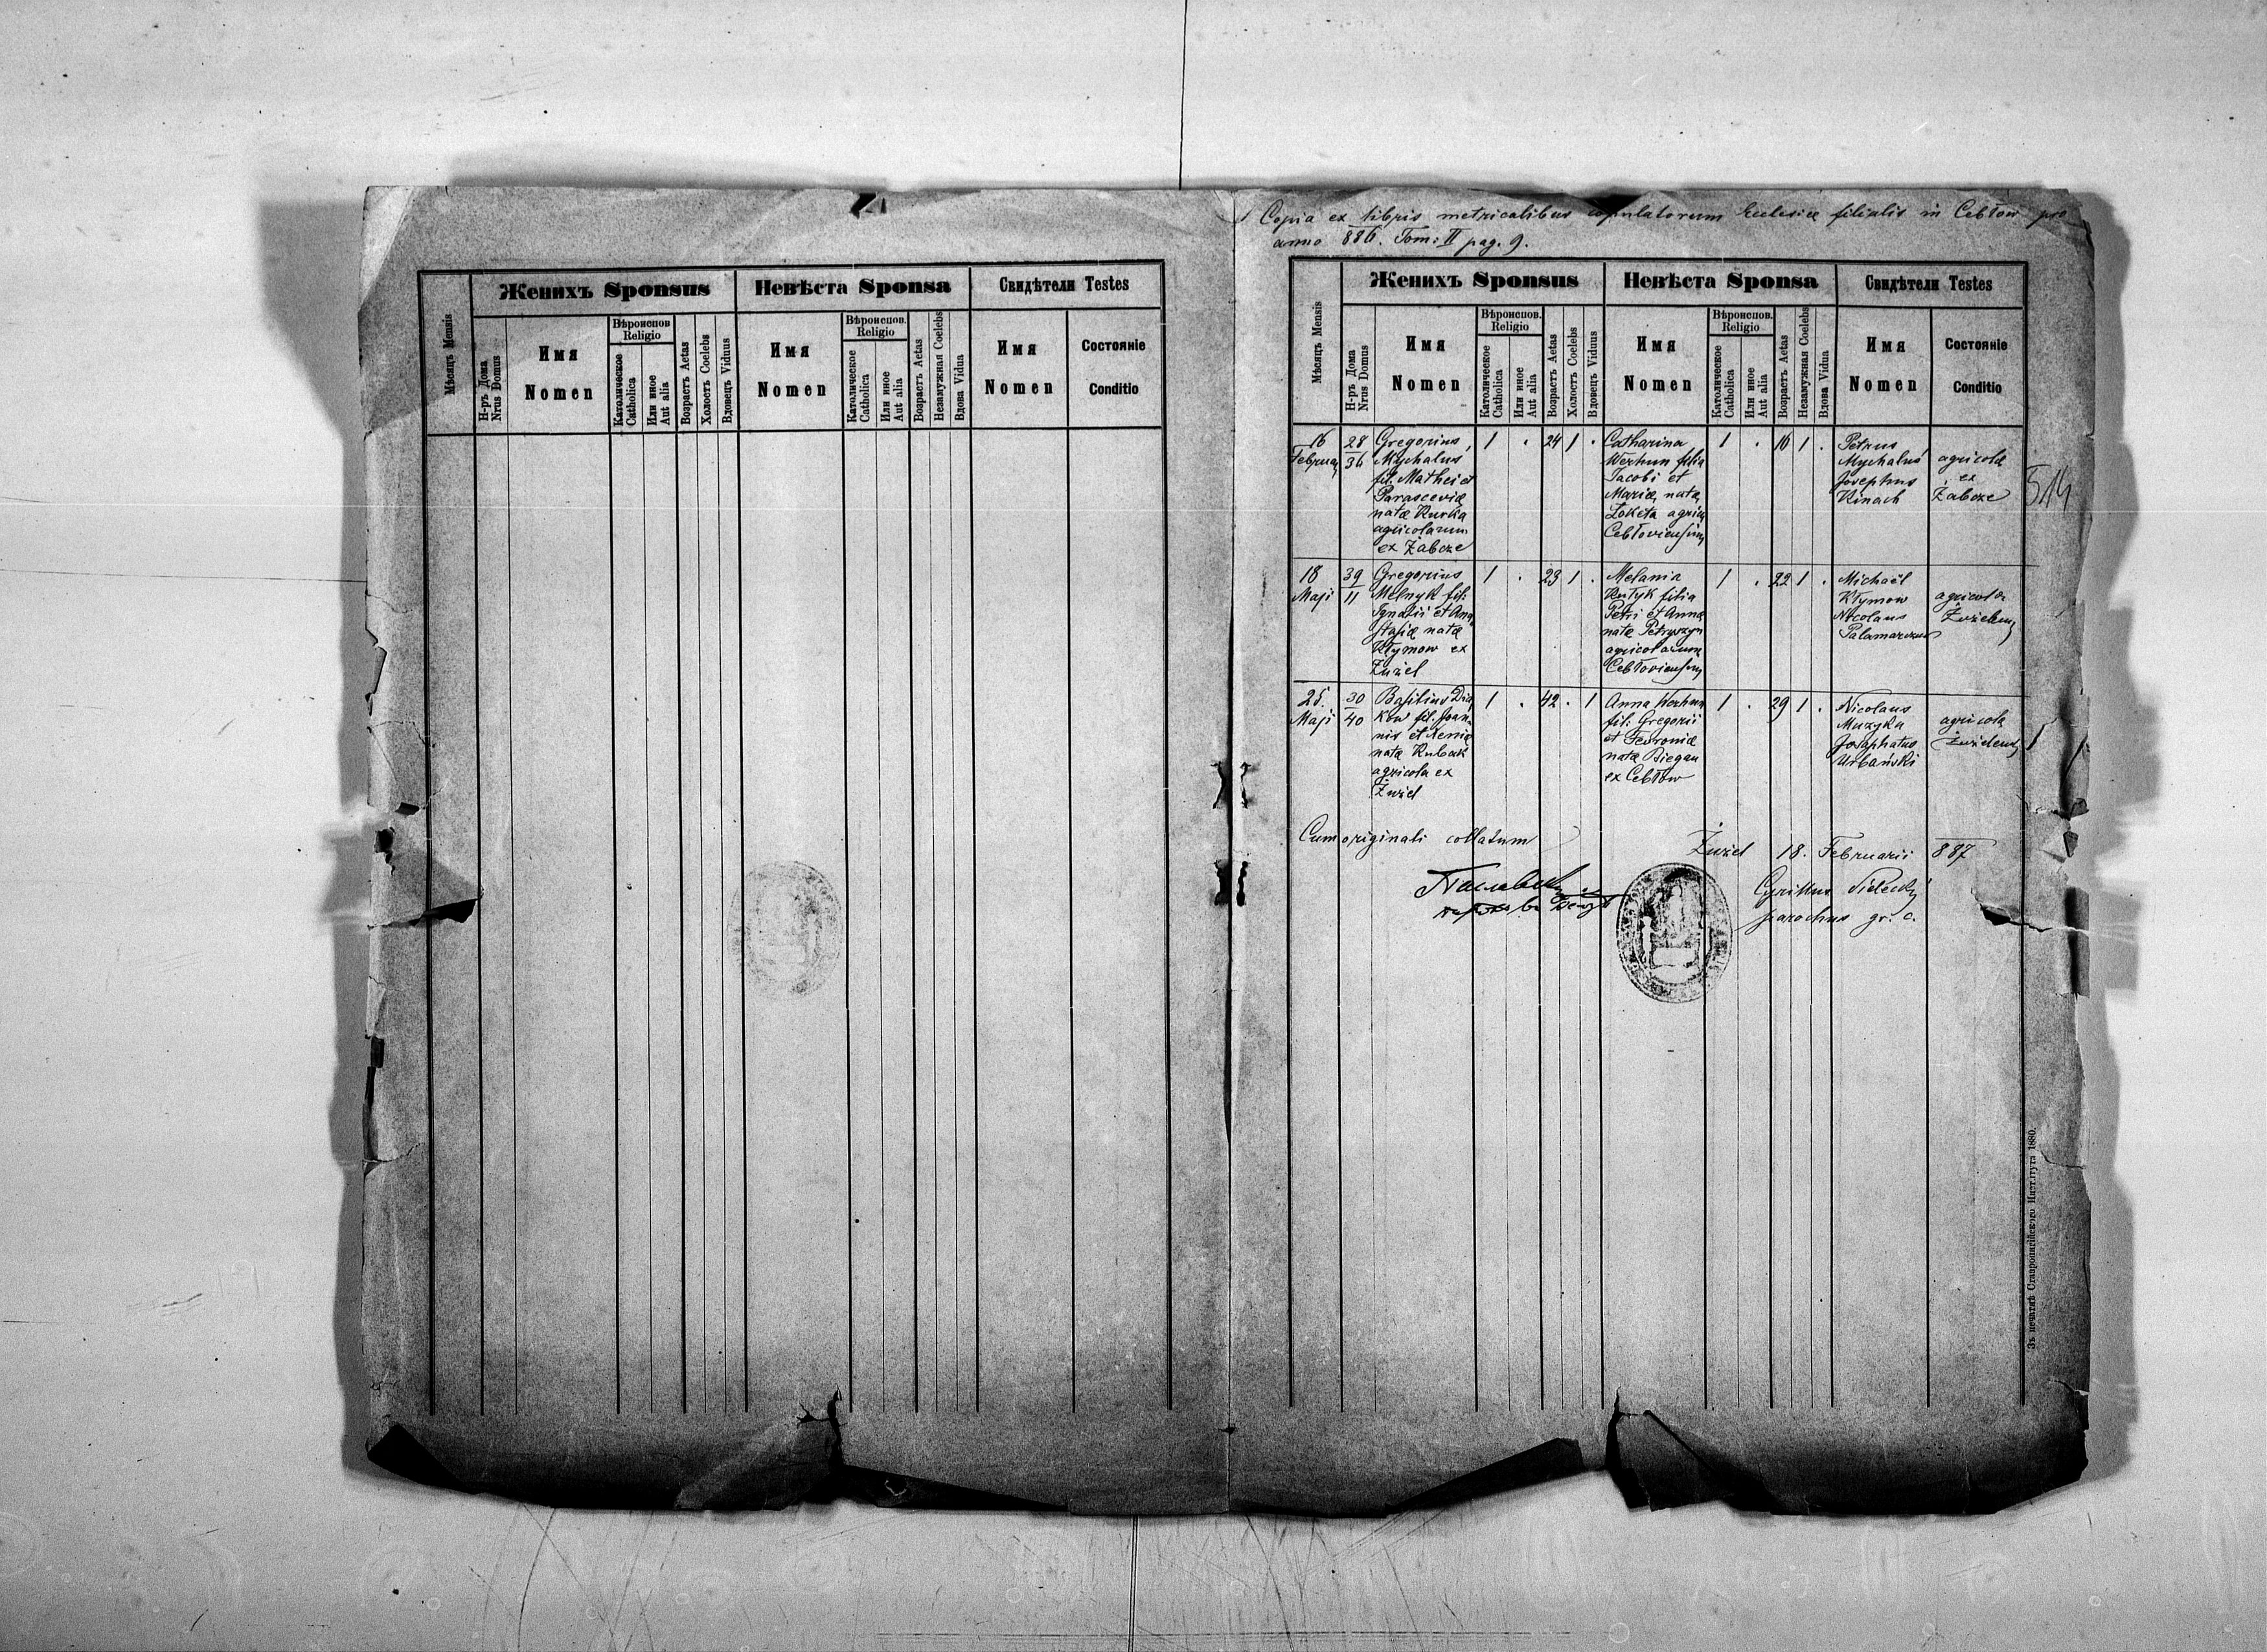 Женихъ Sponsus
Невѣста Sponsa
Свидѣтели Testes
Мѣсяцъ Mensis
Н-ръ Дома
Nrus Domus
Имя
Nomen
Вѣроиспов.
Religio
Католическое
Catholica
Или иное
Aut alia
Возрастъ Aetas
Холостъ Coelebs
Вдовецъ Viduus
Имя
Nomen
Вѣроиспов.
Religio
Католическое
Catholica
Или иное
Aut alia
Возрастъ Aetas
Незамужная Coelebs
Вдова Vidua
Имя
Nomen
Состояніе
Conditio
Copia ex libris metricalibus copulatorum Ecclesiæ filialis in Cebłow pro
anno 886. Tom: II pag. 9.
Женихъ Sponsus
Невѣста Sponsa
Свидѣтели Testes
Мѣсяцъ Mensis
Н-ръ Дома
Nrus Domus
Имя
Nomen
Вѣроиспов.
Religio
Католическое
Catholica
Или иное
Aut alia
Возрастъ Aetas
Холостъ Coelebs
Вдовецъ Viduus
Имя
Nomen
Вѣроиспов.
Religio
Католическое
Catholica
Или иное
Aut alia
Возрастъ Aetas
Незамужная Coelebs
Вдова Vidua
Имя
Nomen
Состояніе
Conditio
16
Februa
28
36
Gregorius
Mychalus
fil. Mathei et
Parasceviæ
natæ Kurka
agricolarum
ex Żabcze
1 . 24 1 .
Catharina
Werhun filia
Jacobi et
Mariæ natæ
Łoketa agric
Cebłoviensium
1 . 16 1 .
Petrus
Mychalus
Josephus
Kinach
agricolæ
ex
Żabcze
514
18
Maji
39
11
Gregorius
Melnyk fil:
Ignatii et Ana
stasiæ natæ
Kłymow ex
Żużel
1 . 23 1 .
Melania
Kutyk filia
Petri et Annæ
natæ Petryszyn
agricolarum
Cebłoviensium
1 . 22 1 .
Michaël
Kłymow
Nicolaus
Palamarczuk
agricolæ
25.
Maji
30
40
Basilius Dia
kow fil. Joan
nis et Xeniæ
natæ Kubak
agricola ex
Żużel
1 . 42 . 1
Anna Werhun
fil: Gregorii
et Fevroniæ
natæ Biegan
ex Cebłow
1 . 29 1 .
Nicolaus
Muzyka
Josaphatus
Urbański
agricolæ
Cum originali collatum
Żużel 18. Februarii 887
Cyrillus
parochus gr. c.
Зъ печатнѣ Ставропигійского Института 1880.